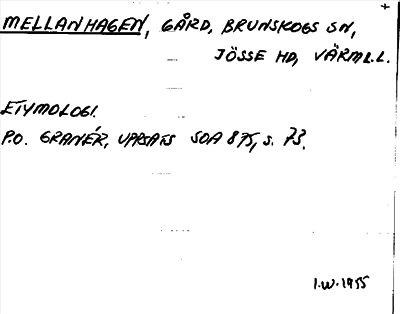 MELLANHAGEN, GÅRD, BRUNSKOGS SN,
JÖSSE HD, VÄRML.L.
ETYMOLOGI.
P.O. GRANÉR, UPPSATS SOA 875, s. 73.
I.W. 1955